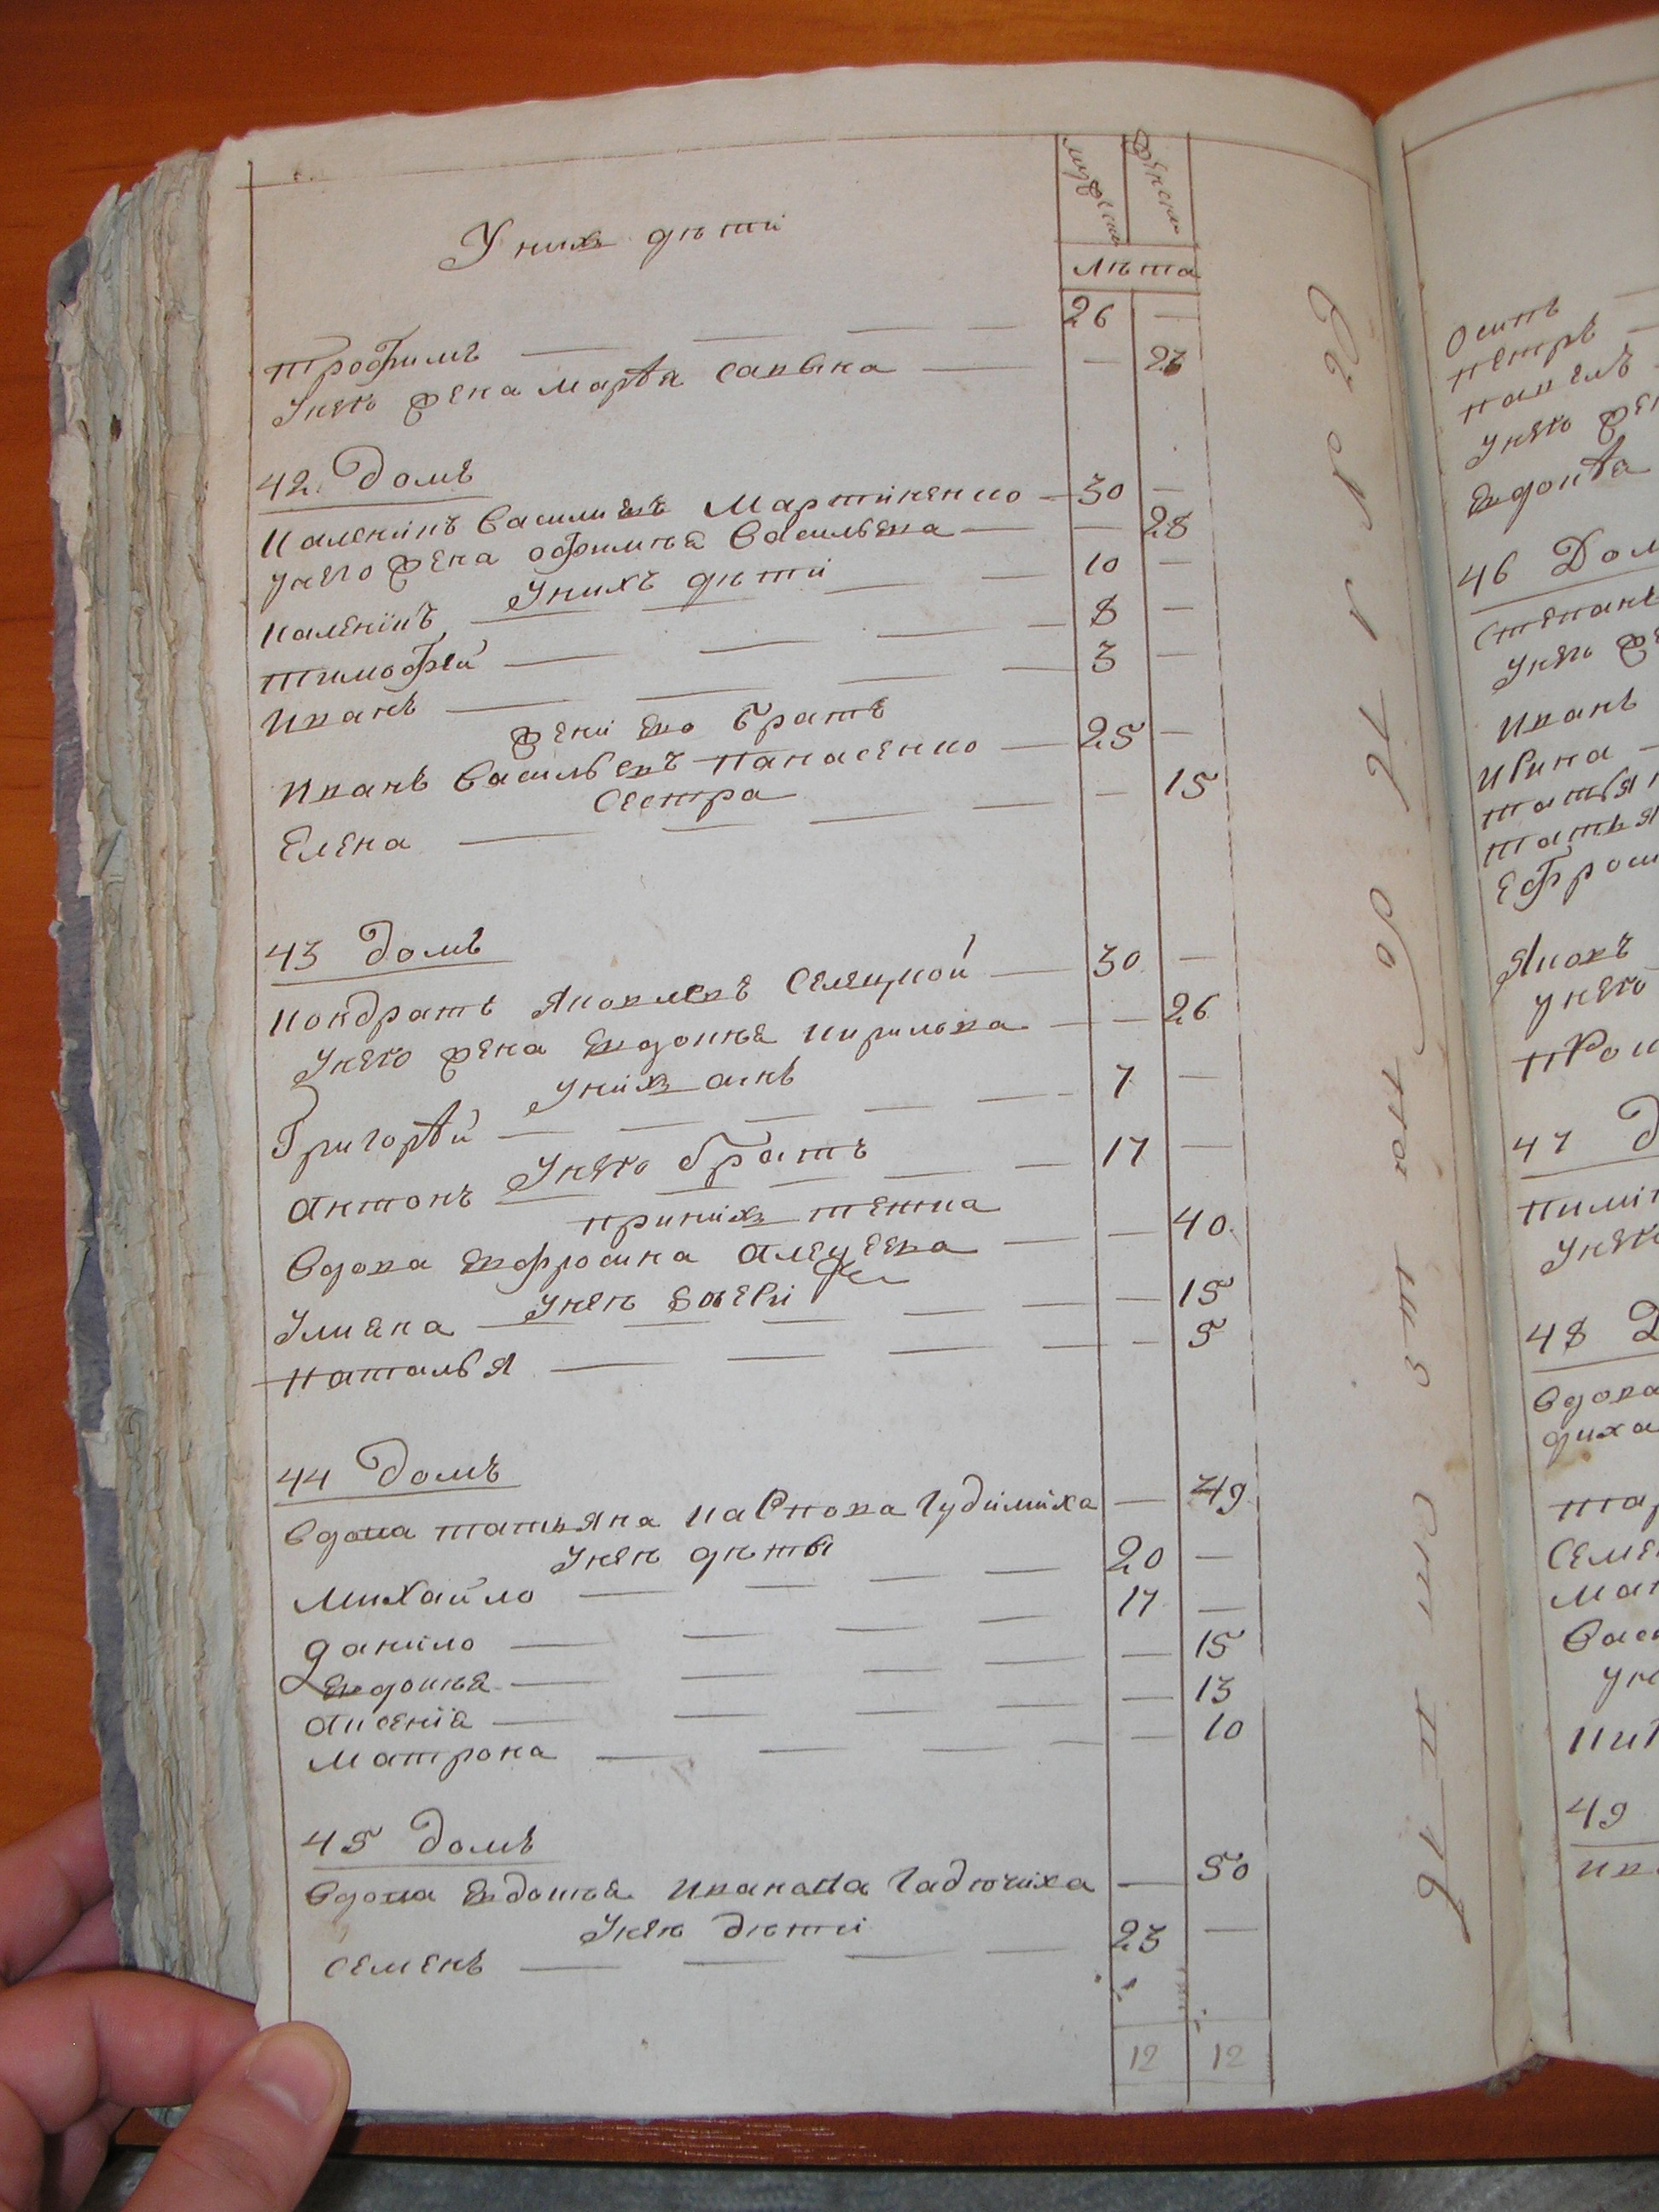 мужеска женска
лѣта
У нихъ дѣти
Трофимъ — — — — 26 —
У него жена Марѳа Савова — — 23
42 домъ
Каленикъ Василиевъ Мартиненко — 30 —
У него жена Офимиѣ Васильева — — 28
У нихъ дѣти
Каленікъ — — — — 10 —
Тимофей — — — — 8 —
Иванъ — — — — 3 —
жени ево братъ
Иванъ Васильевъ Панасенко — 25 —
Сестра
Елена — — — — — 15
43 домъ
Кондратъ Яковлевъ Селецкой — 30 —
У него жена Евдокиѣ Кирилова — — 26
У нихъ синъ
Григорѣй — — — — 7 —
У него братъ
Антонъ — — — — 17 —
При нихъ тешча
Вдова Евфросина — — 40
У неѣ дочери
Улиѣна — — — — — 15
Наталья — — — — — 5
44 домъ
Вдова Татьяна Карпова Гудимиха — 49
У неѣ дѣты
Михайло — — — — 20 —
Данило — — — — 17 —
Евдокиѣ — — — — — 15
Аксеніѣ — — — — — 13
Матрона — — — — — 10
45 домъ
Вдова Евдокиѣ Иванова Гадючиха — 50
У неѣ дѣти
Семенъ — — — — 23 —
12 12
Осипъ
Петръ
Павелъ
У него
Евдокѣа
46 Дом
Степанъ
У него
Иванъ
Ирина
Татьян
Татья
Ефроси
Яковъ
У него
47 Д
У него
48 Д
Вдова
Семе
Мат
Васи
49
Ив